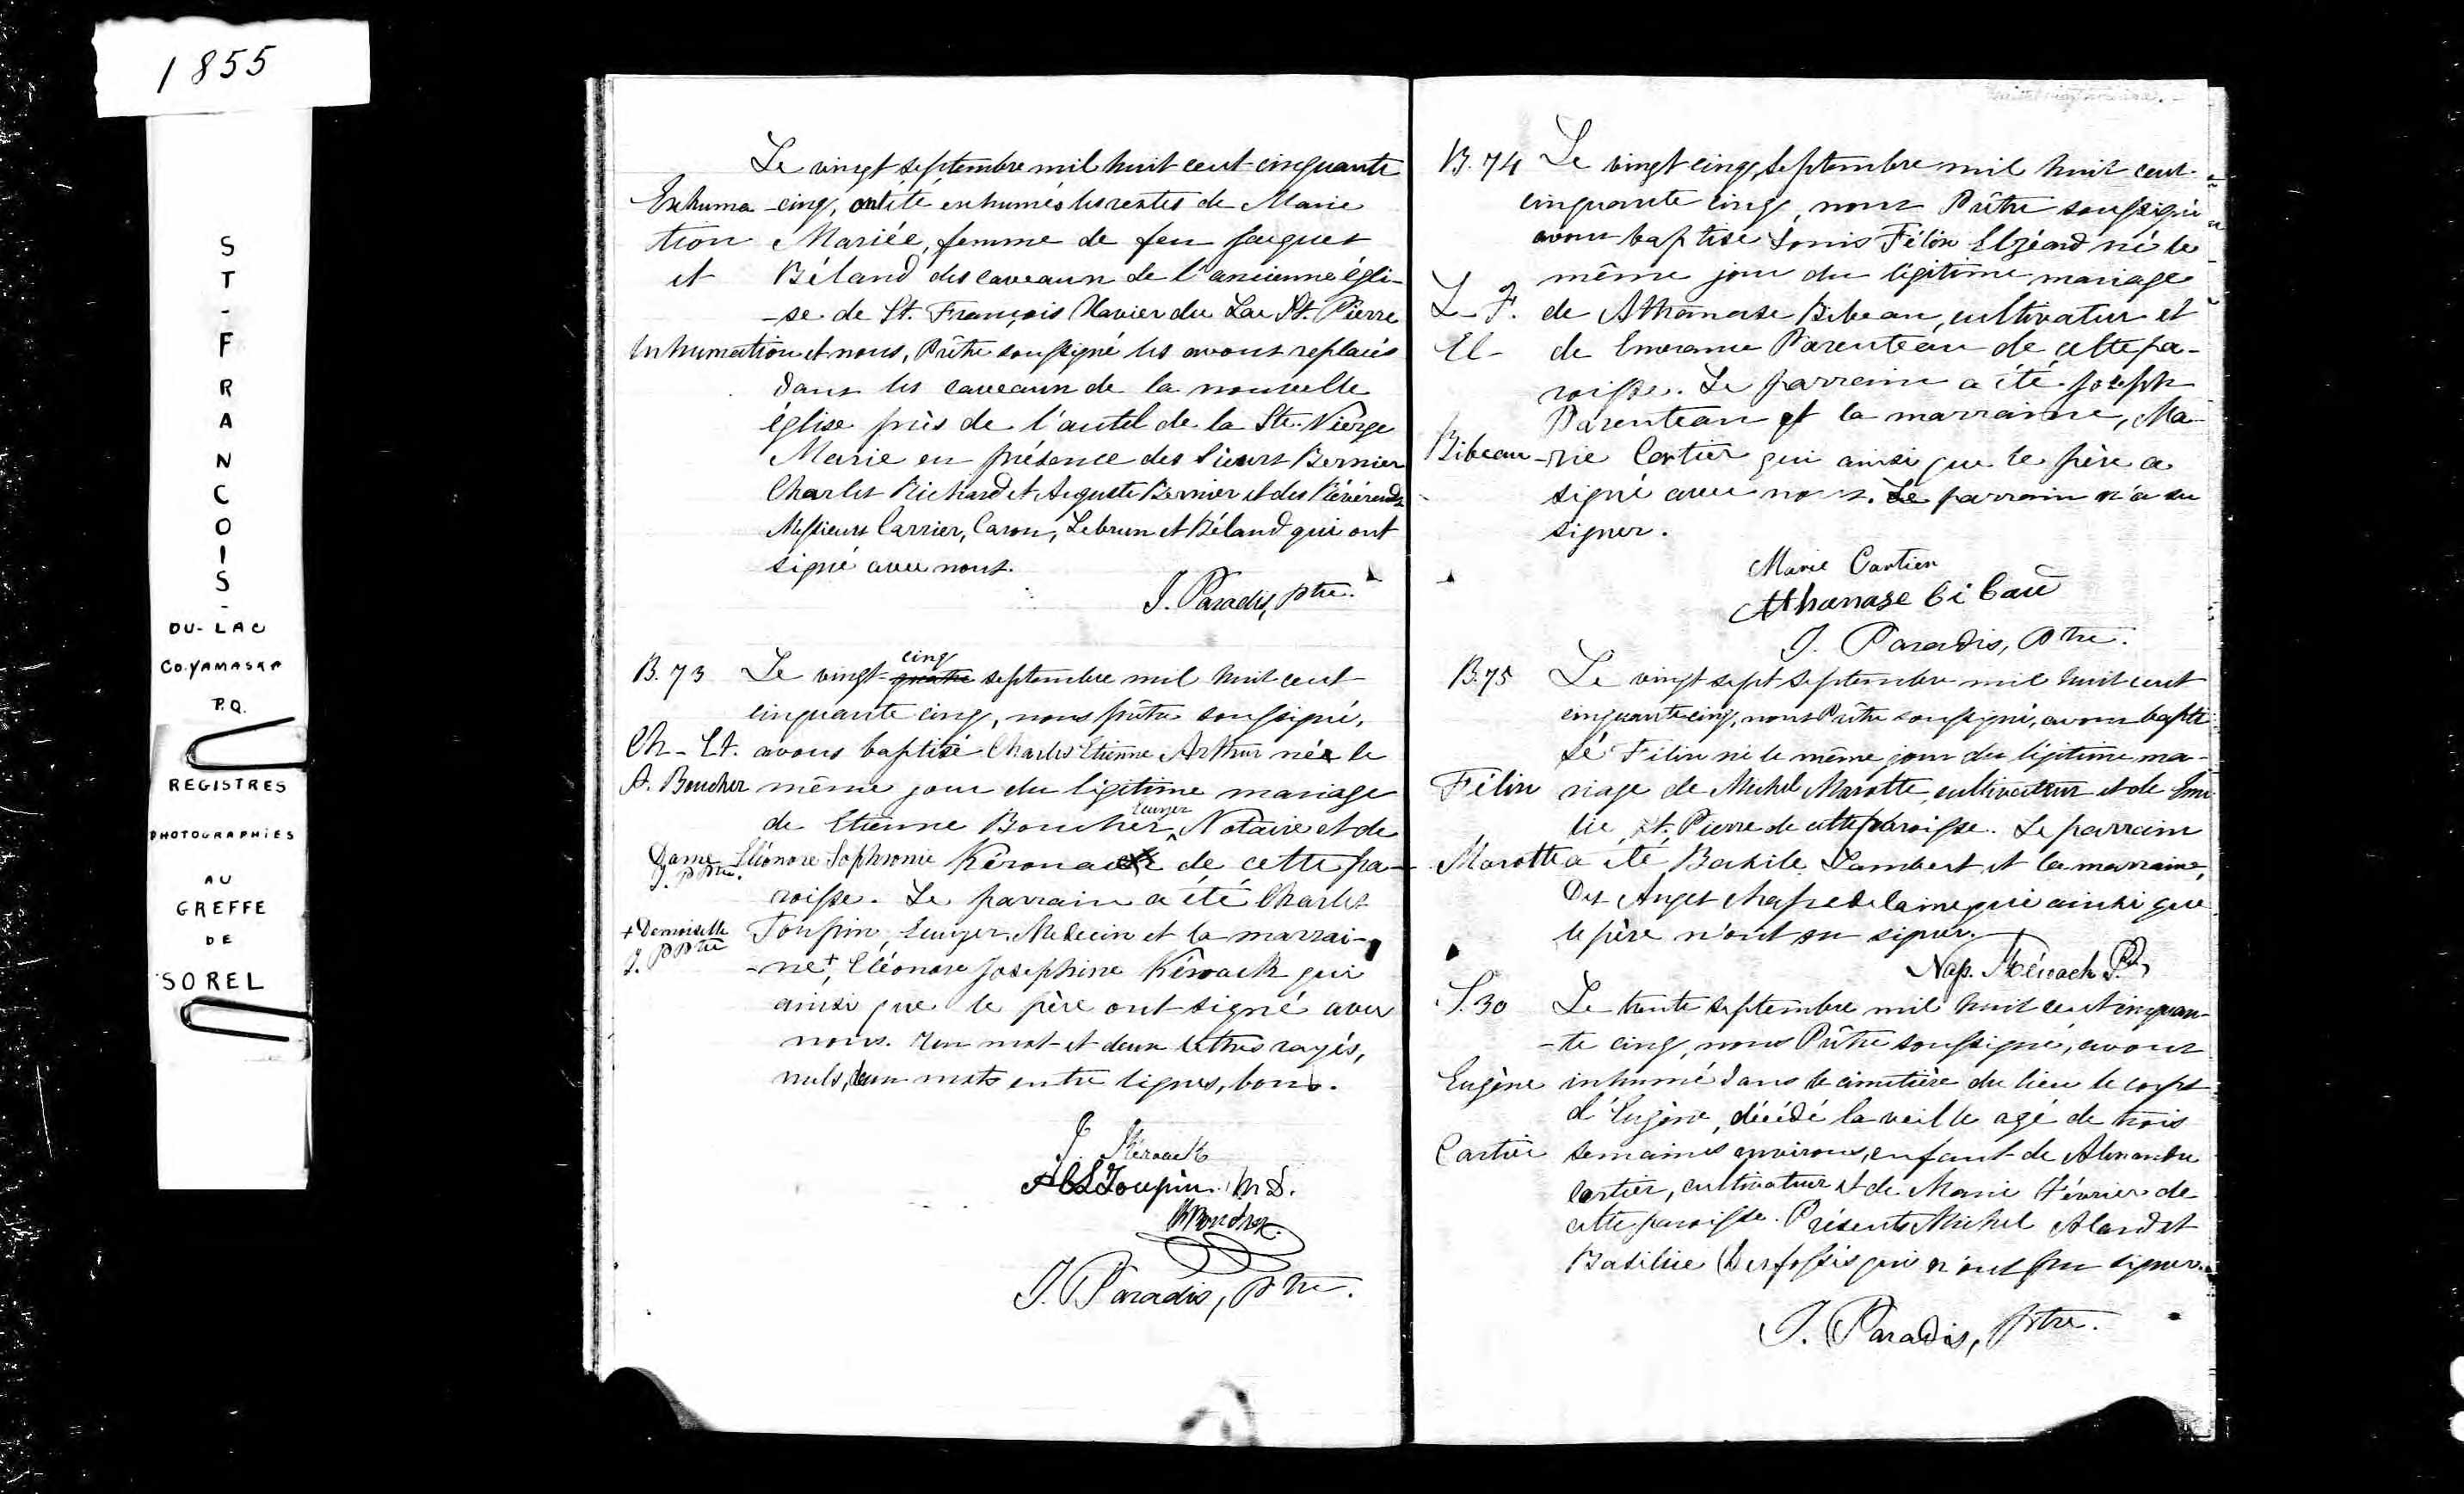 1855
ST-FRANCOIS-
DU-LAC
CO. YAMASKA
P.Q.
REGISTRES
PHOTOGRAPHIES
AU
GREFFE
DE
SOREL
Le vingt septembre mil huit cent cinquante
Exhuma -cinq, ont été exhumés les restes de Marie
tion Mariée, femme de feu Jacques
et Béland des caveaux de l'ancienne égli-
-se de St. François Xavier du Lac St. Pierre
Inhumation et nous, Prêtre soussigné les avons replacés
dans les caveaux de la nouvelle
église près de l'autel de la Ste. Vierge
Marie en présence des Sieurs Bernier
Charles Richard et Auguste Bernier et des Révérends
Messieurs Carrier, Caron, Lebrun et Béland qui ont
signé avec nous.
J. Paradis, Ptre.
cinq
B. 73 Le vingt-quatre septembre mil huit cent
cinquante cinq, nous prêtre soussigné,
Ch- Et. avons baptisé Charles Etienne Arthur né le
A. Boucher même jour du légitime mariage
Ecuyer
de Etienne Boucher, Notaire et de
Dame Eléonore Sophronie Kérouack de cette pa-
J. P Ptre.
roisse. Le parrain a été Charles
+ Demoiselle Toupin, Ecuyer, Médecin et la marrai-
J. P Ptre
-ne+, Eléonore Josephine Kérouack qui
ainsi que le père ont signé avec
nous. Un mot et deux lettres rayés,
nuls, deux mots entre lignes, bons.
J. Kérouack
Toupin. M.D.
Boucher
J. Paradis, Ptre.
B. 74 Le vingt cinq septembre mil huit cent
cinquante cinq, nous Prêtre soussigné
avons baptisé Louis Félix Elzéard né le
même jour du légitime mariage
L- F. de Athanase Bibeau, cultivateur et
El- de Emerance Parenteau de cette pa-
roisse. Le parrain a été Joseph
Parenteau et la marraine, Ma-
Bibeau -rie Cartier qui ainsi que le père a
signé avec nous. Le parrain n'a su
signer.
Marie Cartier
Athanase bi bau
J. Paradis, Ptre.
B. 75 Le vingt sept septembre mil huit cent
cinquante cinq, nous Prêtre soussigné, avons bapti
sé Félix né le même jour du légitime ma-
Félix riage de Michel Marotte, cultivateur et de Emi
lie St. Pierre de cette paroisse. Le parrain
Marotte a été Basile Lambert et la marraine,
Des Anges Chapedelaine qui ainsi que
le père n'ont su signer.
Nap. Kérouack
S. 30 Le trente septembre mil huit cent cinquan-
-te cinq, nous Prêtre soussigné, avons
Eugène inhumé dans le cimetière du lieu le corps
d'Eugène, décédé la veille agé de trois
Cartier semaines environs, enfant de Alexandre
Cartier, cultivateur et de Marie Février de
cette paroisse. Présents Michel Alard et
Basilice Desfossés qui n'ont pu signer.
J. Paradis, Ptre.